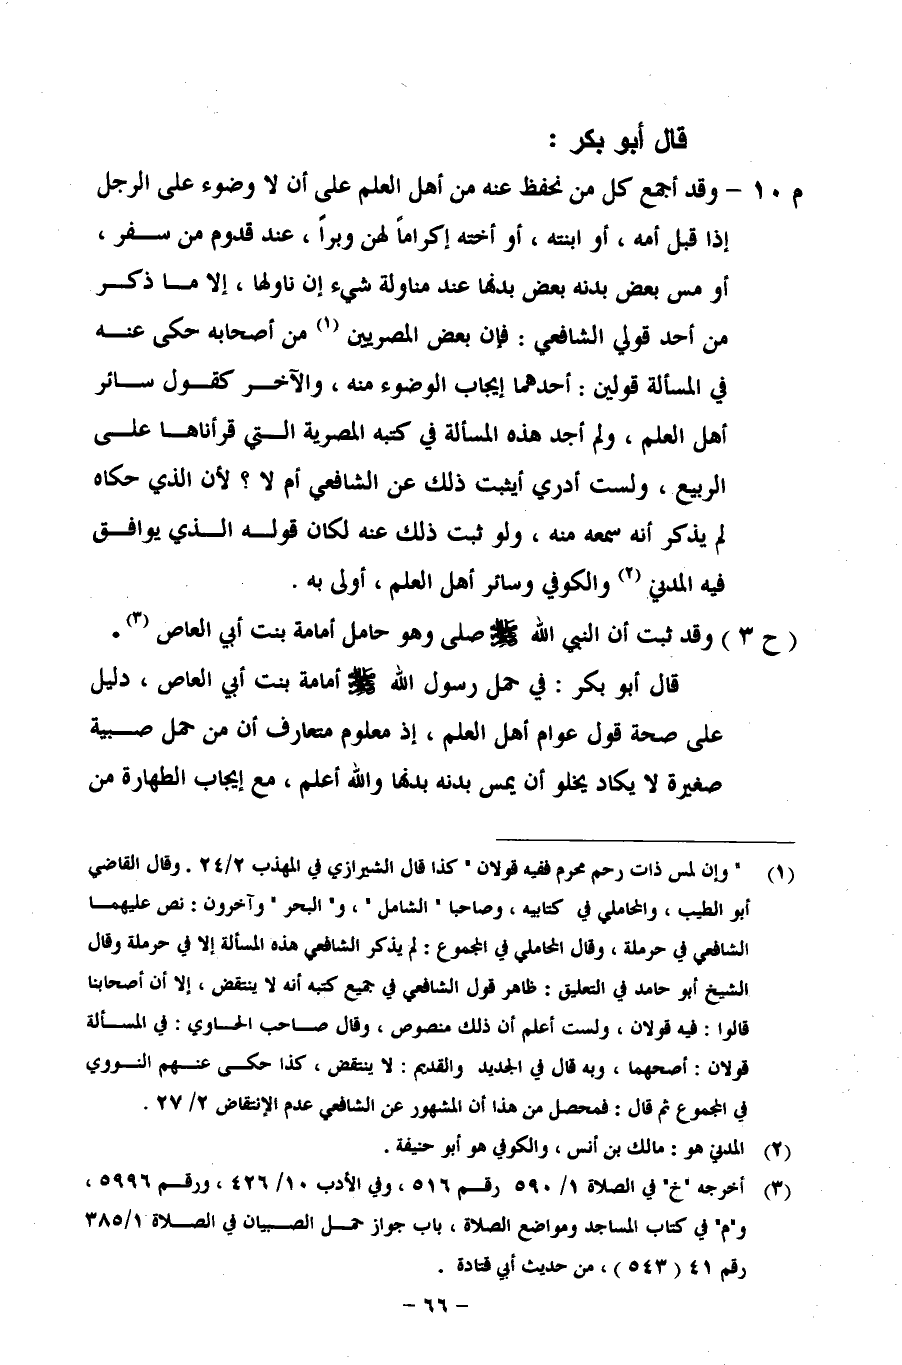 قال أبو بكر :
م ١٠ – وقد أجمع كل من نحفظ عنه من أهل العلم على أن لا وضوء على الرجل
إذا قبل أمه ، أو ابنته ، أو أخته إكراماً لهن وبراً ، عند قدوم من سفر ،
أو مس بعض بدنه بعض بدنها عند مناولة شيء إن ناولها ، إلا ما ذكر
من أحد قولي الشافعي : فإن بعض المصريين (١) من أصحابه حكى عنه
في المسألة قولين : أحدهما إيجاب الوضوء منه ، والآخر كقول سائر
أهل العلم ، ولم أجد هذه المسألة في كتبه المصرية التي قرأناها على
الربيع ، ولست أدري أيثبت ذلك عن الشافعي أم لا ؟ لأن الذي حكاه
لم يذكر أنه سمعه منه ، ولو ثبت ذلك عنه لكان قوله الذي يوافق
فيه المدني (٢) والكوفي وسائر أهل العلم ، أولى به .
( ح ٣ ) وقد ثبت أن النبي الله ﷺ صلى وهو حامل أمامة بنت أبي العاص (٣) .
قال أبو بكر : في حمل رسول الله ﷺ أمامة بنت أبي العاص ، دليل
على صحة قول عوام أهل العلم ، إذ معلوم متعارف أن من حمل صبية
صغيرة لا يكاد يخلو أن يمس بدنه بدنها والله أعلم ، مع إيجاب الطهارة من
(١) " وإن لمس ذات رحم محرم ففيه قولان " كذا قال الشيرازي في المهذب ٢٤/٢ . وقال القاضي
أبو الطيب ، والمحاملي في كتابيه ، وصاحبا " الشامل " ، و" البحر " وآخرون : نص عليهما
الشافعي في حرملة ، وقال المحاملي في المجموع : لم يذكر الشافعي هذه المسألة إلا في حرملة وقال
الشيخ أبو حامد في التعليق : ظاهر قول الشافعي في جميع كتبه أنه لا ينتقض ، إلا أن أصحابنا
قالوا : فيه قولان ، ولست أعلم أن ذلك منصوص ، وقال صاحب الحاوي : في المسألة
قولان : أصحهما ، وبه قال في الجديد والقديم : لا ينتقض ، كذا حكى عنهم النووي
في المجموع ثم قال : فمحصل من هذا أن المشهور عن الشافعي عدم الإنتقاض ٢/ ٢٧ .
(٢) المدني هو : مالك بن أنس ، والكوفي هو أبو حنيفة .
(٣) أخرجه "خ" في الصلاة ١/ ٥٩٠ رقم ٥١٦ ، وفي الأدب ١٠/ ٤٢٦ ، ورقم ٥٩٩٦ ،
و"م" في كتاب المساجد ومواضع الصلاة ، باب جواز حمل الصبيان في الصلاة ٣٨٥/١
رقم ٤١ ( ٥٤٣ ) ، من حديث أبي قتادة .
– ٦٦ –